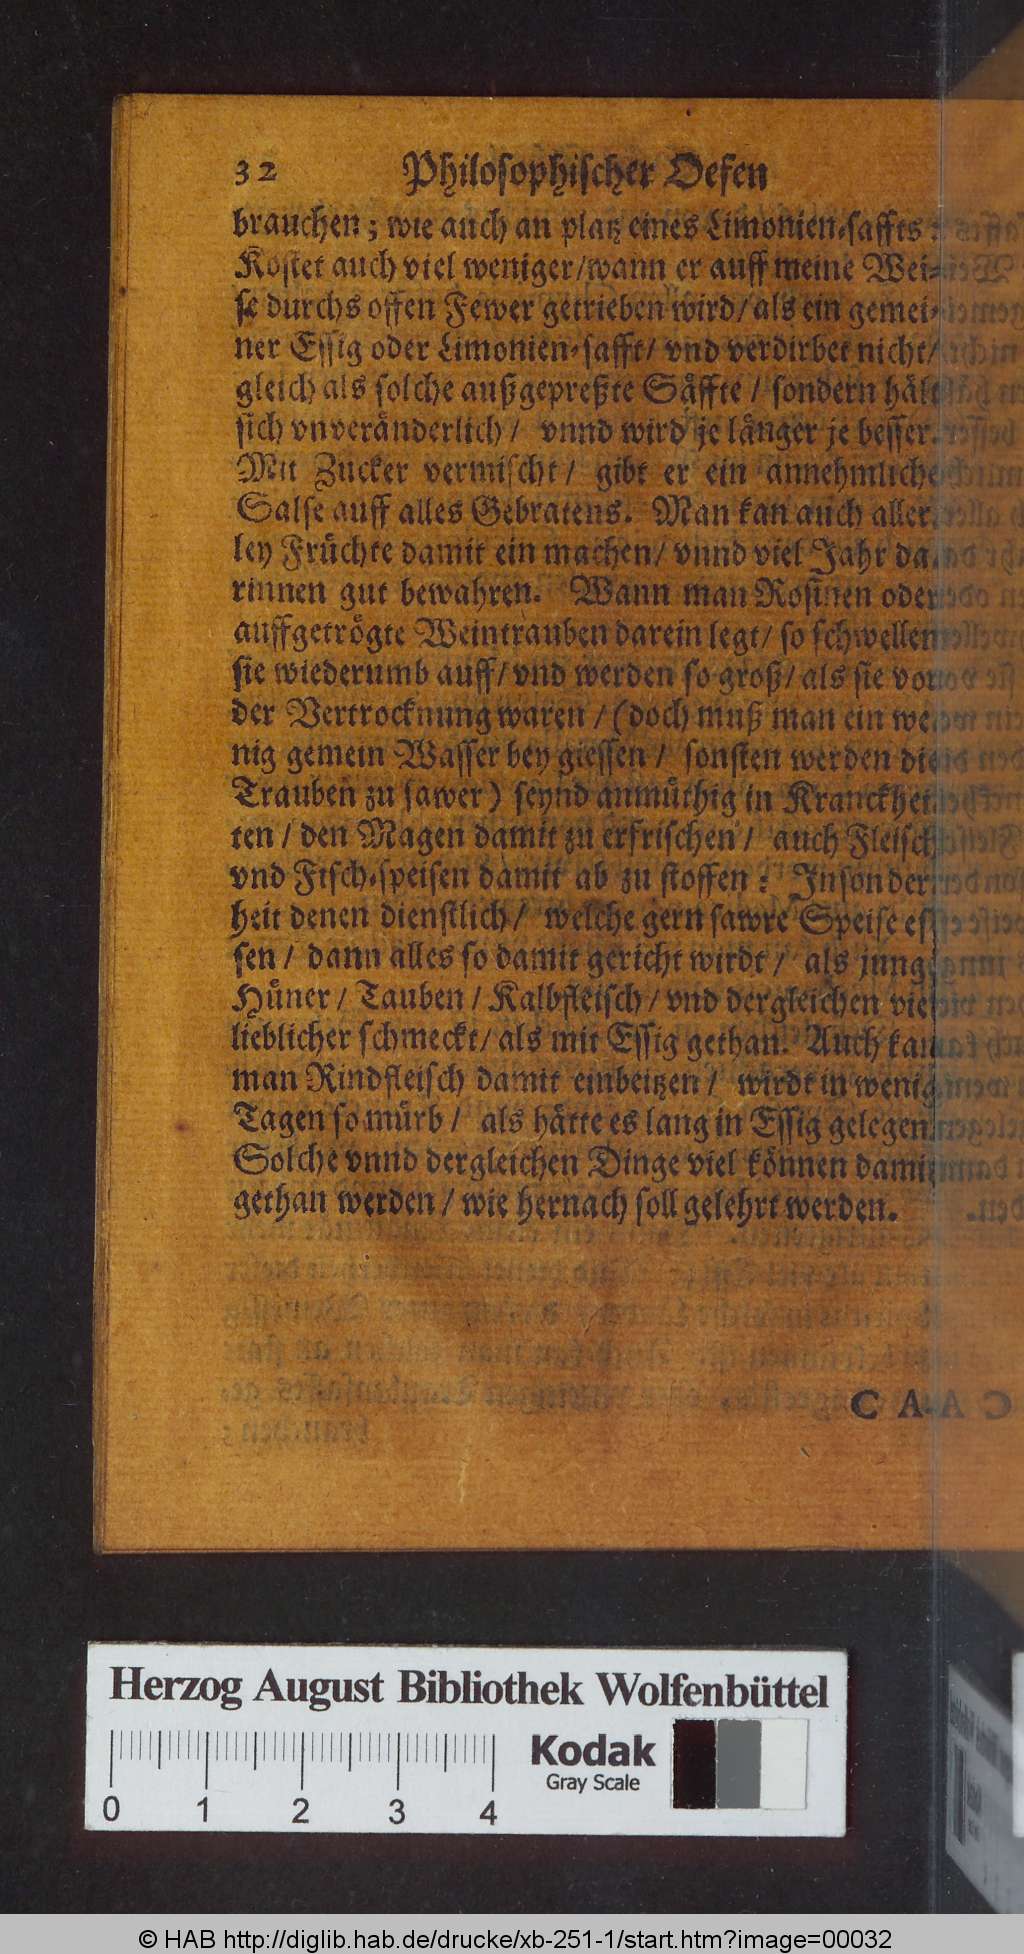 32 Philosophischer Oefen
brauchen; wie auch an platz eines Limonien-saffts:
Kostet auch viel weniger/wann er auff meine Wei-
se durchs offen Fewer getrieben wird/ als ein gemei-
ner Essig oder Limonien-safft/ vnd verdirbet nicht/
gleich als solche außgepreßte Säffte / sondern hält
sich vnveränderlich / vnnd wird je länger je besser.
Mit Zucker vermischt / gibt er ein annehmliche
Salse auff alles Gebratens. Man kan auch aller-
ley Früchte damit ein machen/ vnnd viel Jahr da-
rinnen gut bewahren. Wann man Rosinen oder
auffgetrögte Weintrauben darein legt/ so schwellen
sie wiederumb auff/ vnd werden so groß/ als sie vor
der Vertrocknung waren / (doch muß man ein we-
nig gemein Wasser bey giessen / sonsten werden die
Trauben zu sawer) seynd anmüthig in Kranckhei-
ten / den Magen damit zu erfrischen / auch Fleisch
vnd Fisch-speisen damit ab zu stoffen: Insonder-
heit denen dienstlich / welche gern sawre Speise es-
sen / dann alles so damit gericht wirdt / als jung
Hüner / Tauben / Kalbfleisch / vnd dergleichen viel
lieblicher schmeckt/ als mit Essig gethan. Auch kan
man Rindfleisch damit einbeitzen / wirdt in wenig
Tagen so mürb / als hätte es lang in Essig gelegen
Solche vnnd dergleichen Dinge viel können damit
gethan werden / wie hernach soll gelehrt werden.
Herzog August Bibliothek Wolfenbüttel
Kodak
Gray Scale
0 1 2 3 4
© HAB http://diglib.hab.de/drucke/xb-251-1/start.htm?image=00032